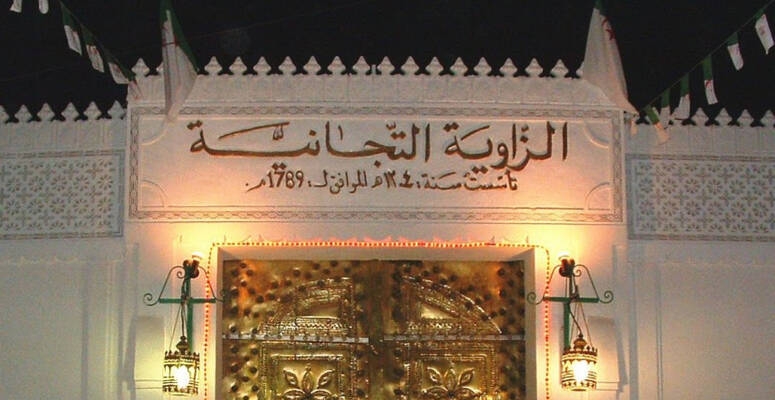 الزّاوية التّجانيّة
تأسّست سنة: ١٢٠٤هـ الموافق لـ: 1789م.